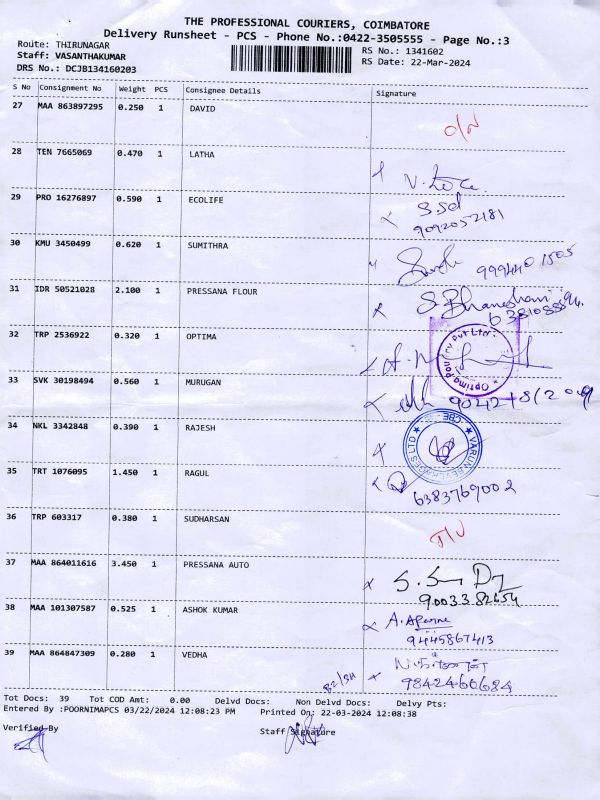 THE PROFESSIONAL COURIERS, COIMBATORE
Delivery Runsheet - PCS - Phone No.:0422-3505555 - Page No.:3
Route: THIRUNAGAR RS No.: 1341602
Staff: VASANTHAKUMAR RS Date: 22-Mar-2024
DRS No.: DCJB134160203
S No Consignment No Weight PCS Consignee Details Signature
27 MAA 863897295 0.250 1 DAVID
28 TEN 7665069 0.470 1 LATHA
29 PRO 16276897 0.590 1 ECOLIFE
9092052181
30 KMU 3450499 0.620 1 SUMITHRA
31 IDR 50521028 2.100 1 PRESSANA FLOUR
32 TRP 2536922 0.320 1 OPTIMA
33 SVK 30198494 0.560 1 MURUGAN
34 NKL 3342848 0.390 1 RAJESH
35 TRT 1076095 1.450 1 RAGUL
6383769002
36 TRP 603317 0.380 1 SUDHARSAN
37 MAA 864011616 3.450 1 PRESSANA AUTO
38 MAA 101307587 0.525 1 ASHOK KUMAR
9445867413
39 MAA 864847309 0.280 1 VEDHA
9842460684
Tot Docs: 39 Tot COD Amt: 0.00 Delvd Docs: Non Delvd Docs: Delvy Pts:
Entered By :POORNIMAPCS 03/22/2024 12:08:23 PM Printed On: 22-03-2024 12:08:38
Verified By Staff Signature